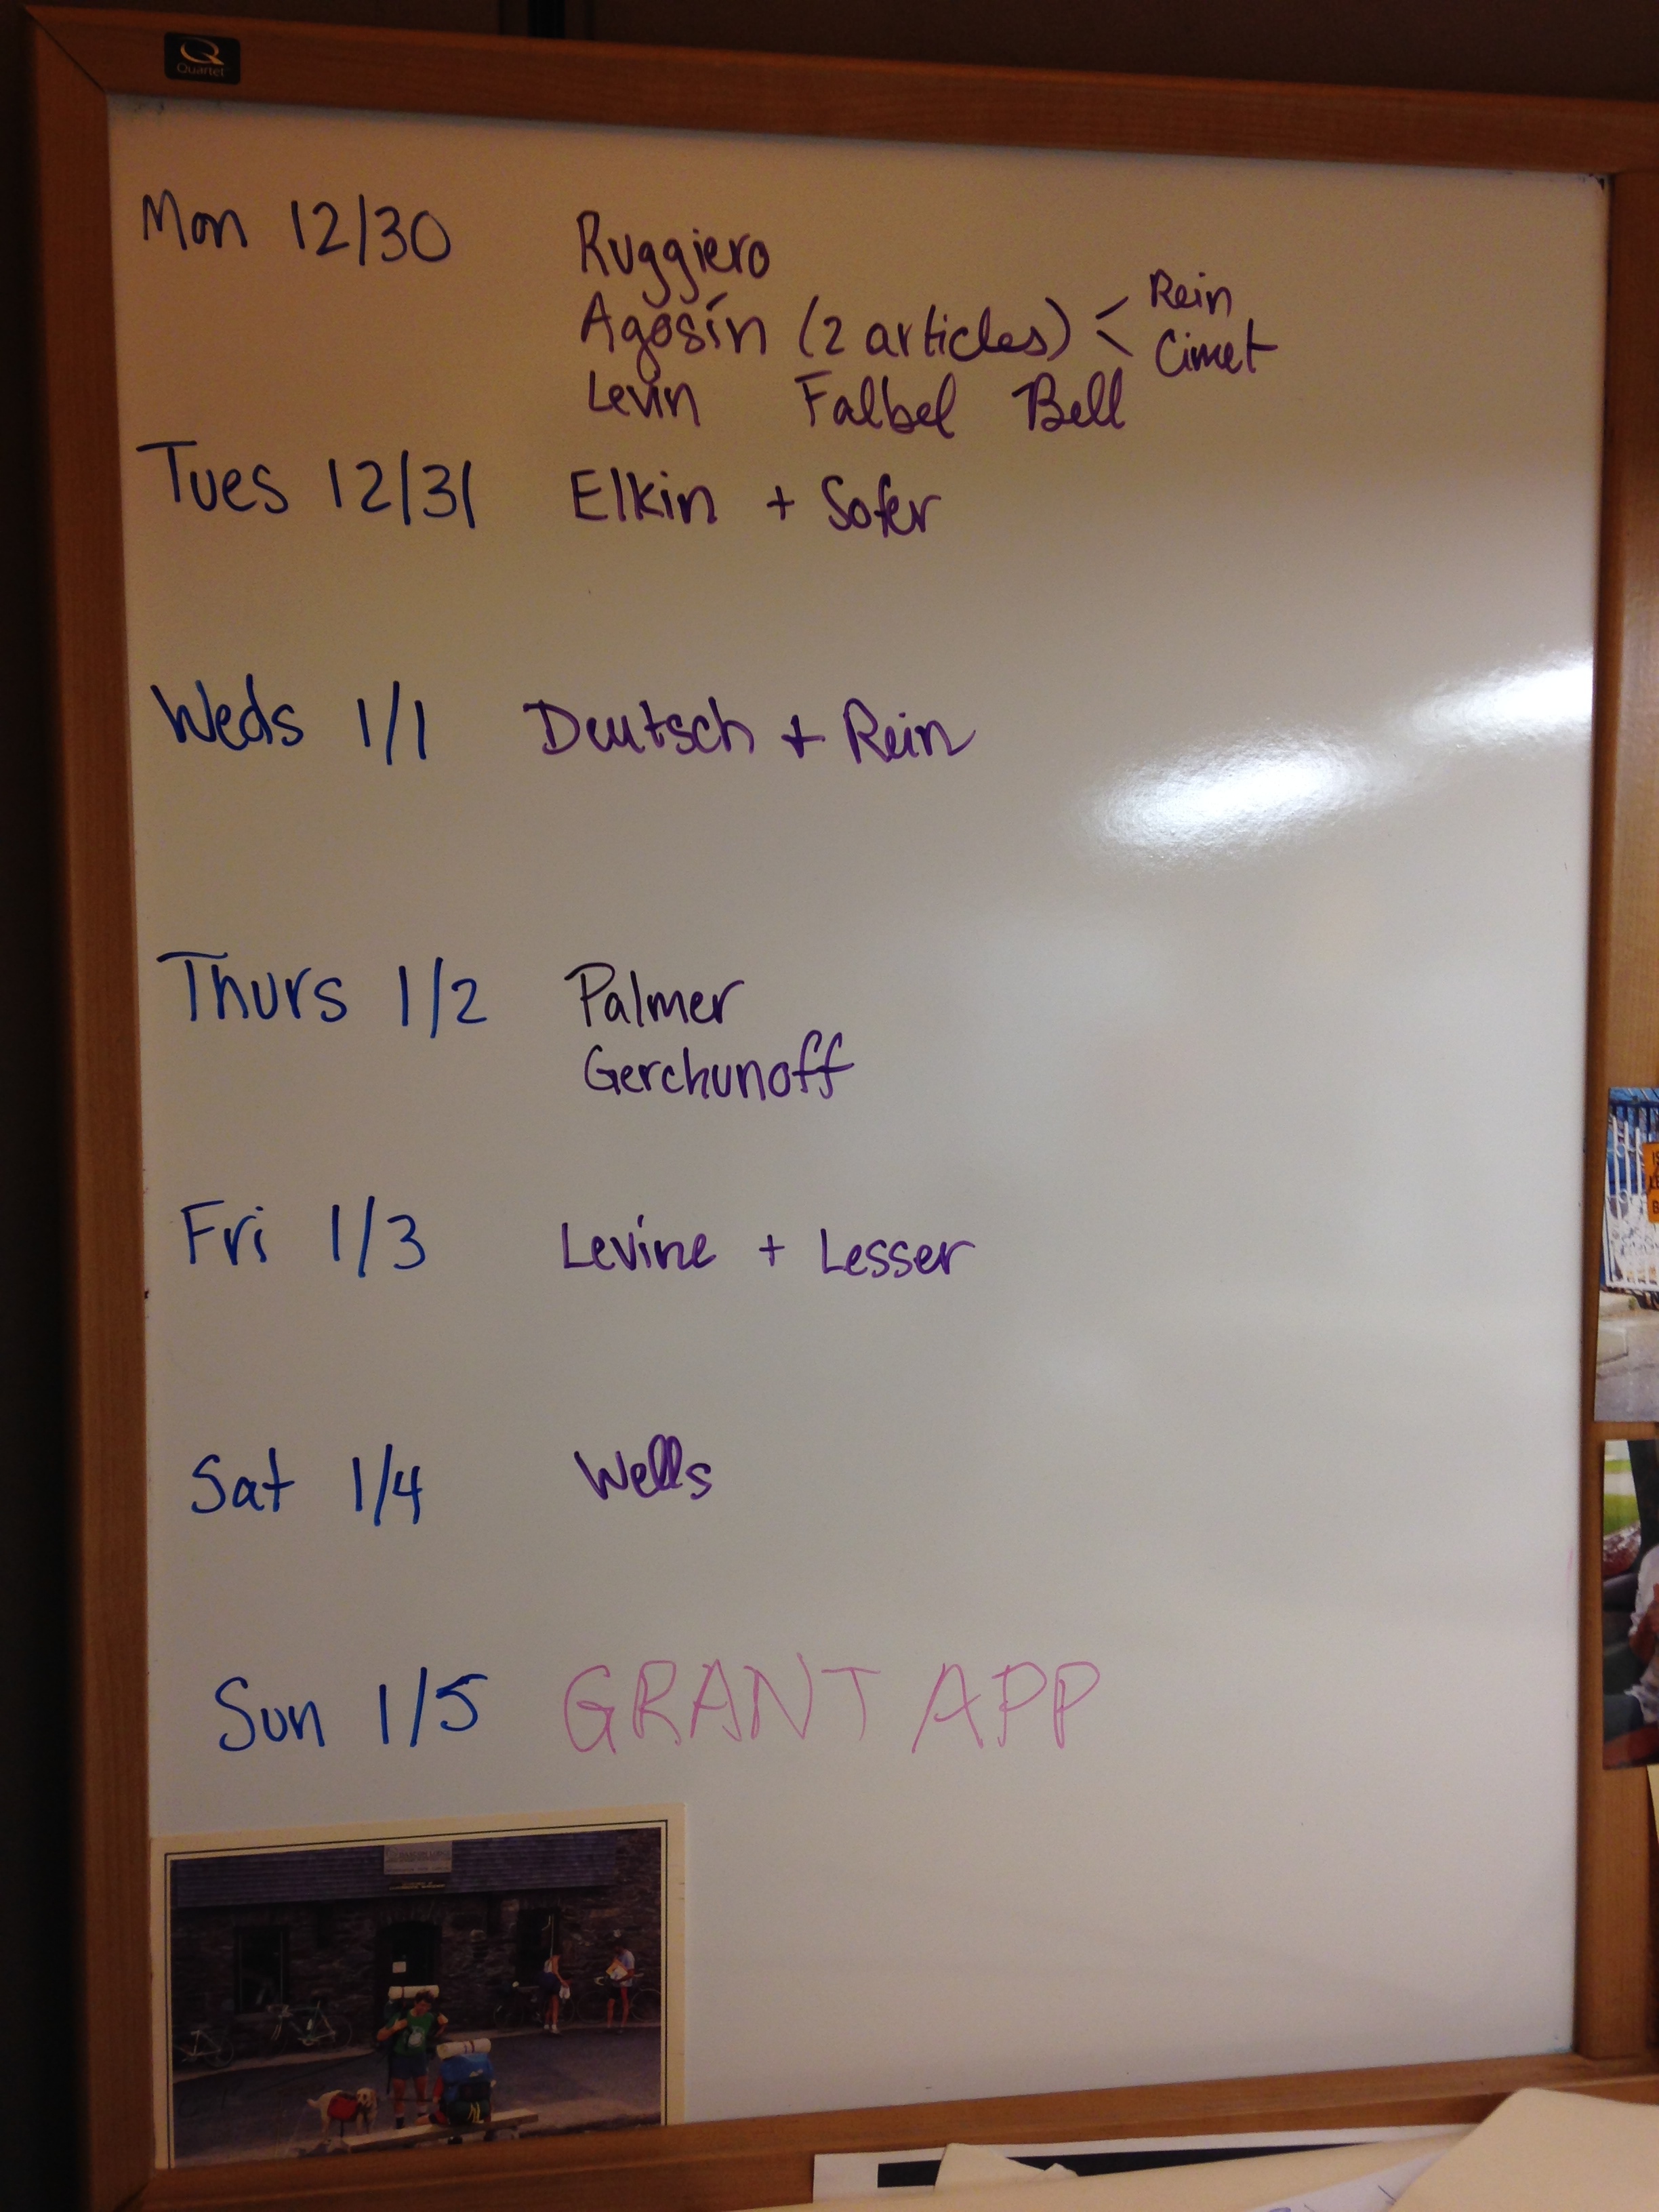 Quartet
Mon 12/30 Ruggiero
Agosín (2 articles) < Rein
Cimet
Levin Falbel Bell
Tues 12/31 Elkin + Sofer
Weds 1/1 Deutsch + Rein
Thurs 1/2 Palmer
Gerchunoff
Fri 1/3 Levine + Lesser
Sat 1/4 Wells
Sun 1/5 GRANT APP